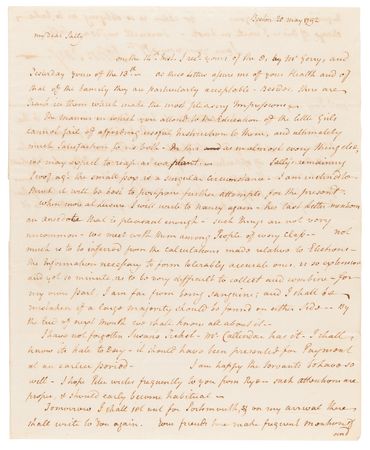 Boston 20 May 1792
My dear Sally
On the Inst. I recd. yours of the 8. by Mr. Gorry, and
Yesterday yours of the 13th — as these letters assure me of your Health and of
that of the family they are particularly acceptable. Besides, there are
Traits in them which make the most pleasing Impressions.
The manner in which you attend to the Education of the little Girls
cannot fail of affording useful Instruction to them, and ultimately
much Satisfaction to us both. In this as in almost every thing else,
we may expect to reap as we plant. — Sally's remaining
proof agt. the small pox is a singular circumstance. I am inclined to
think it will be best to postpone further attempts, for the present.
When more at leisure I will write to Nancy again — her last letter mentions
an anecdote that is pleasant enough — such things are not very
uncommon — we meet with them among People of every class — not
much is to be inferred from the Calculations made relative to Elections —
the Information necessary to form tolerably accurate ones, is so extensive
and yet so minute, as to be very difficult to collect and combine — for
my own part, I am far from being sanguine; and I shall be
mistaken if a large majority should be found on either side — By
the end of next month we shall know all about it —
I have not forgotten Susans Ticket — Mr. has it — I shall
know its fate to Day — it should have been presented for Payment
at an earlier period — I am happy the Servants behave so
well — I hope Peter writes frequently to you from Rye — such attentions are
proper, & should early become habitual —
Tomorrow I shall set out for Portsmouth, & on my arrival there
shall write to you again. Your friends here make frequent mention of
and